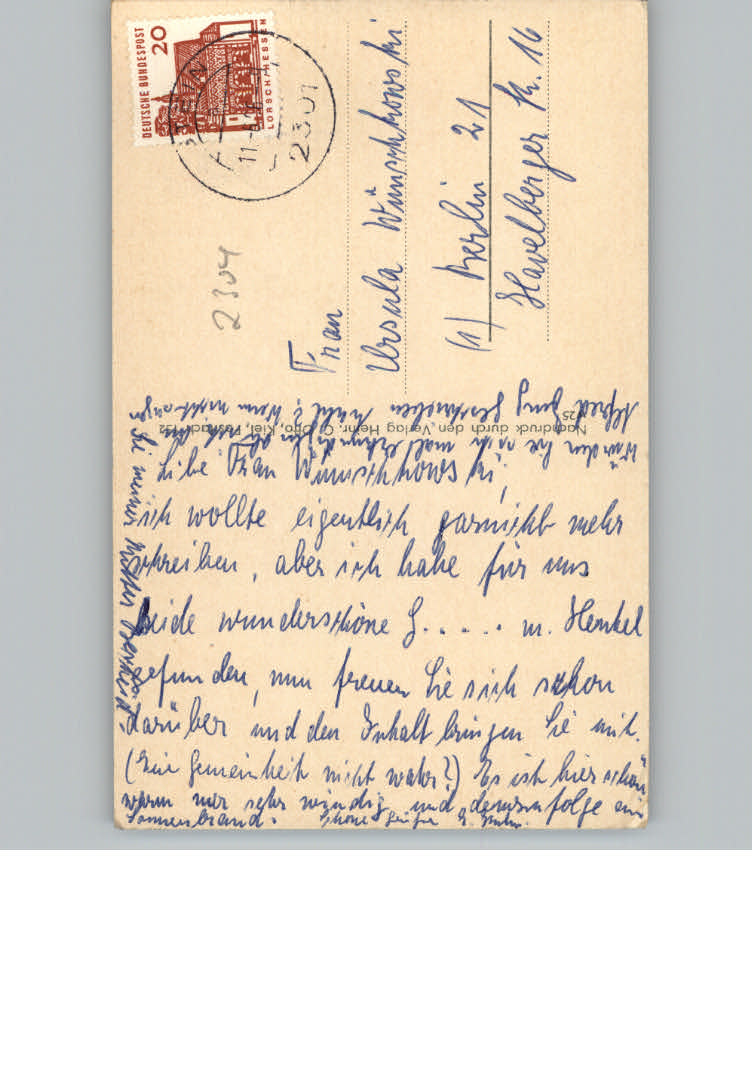 DEUTSCHE BUNDESPOST
20
LORSCH/HESSEN
STEIN
11.
2301
2304
Frau
Ursula Wünschkowski
(1) Berlin 21
Havelberger Str. 16
Nachdruck durch den Verlag Heinr. C. Otto, Kiel, Postfach
Würden Sie sich mal erkundigen ob sich
Alfred Jung geschrieben hat? Wenn nicht sagen
Sie meiner Mutter Bescheid.
Liebe Frau Wünschkowski,
ich wollte eigentlich garnicht mehr
schreiben, aber ich habe für uns
beide wunderschöne G..... m. Henkel
gefunden, nun freuen Sie sich schon
darüber und den Inhalt bringen Sie mit.
(Eine Gemeinheit nicht wahr?) Es ist hier schön
warm nur sehr windig und demzufolge ein
Sonnenbrand. Schöne Grüße